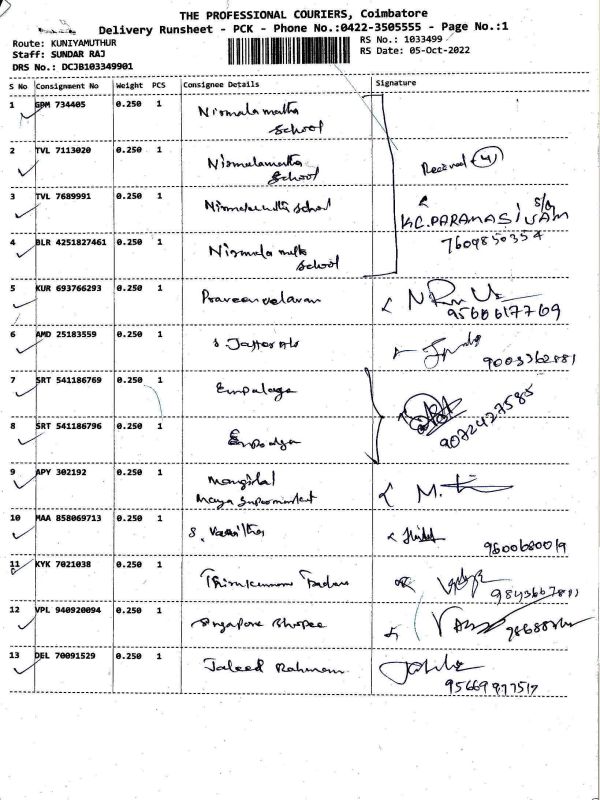 THE PROFESSIONAL COURIERS, Coimbatore
Delivery Runsheet - PCK - Phone No.:0422-3505555 - Page No.:1
Route: KUNIYAMUTHUR
RS No.: 1033499
Staff: SUNDAR RAJ
RS Date: 05-Oct-2022
DRS No.: DCJB103349901
S No Consignment No Weight PCS Consignee Details Signature
1 GPM 734405 0.250 1 Nirmala matha
School
2 TVL 7113020 0.250 1 Nirmalamatha
School
Received (4)
3 TVL 7689991 0.250 1 school
S/O
K.C.PARAMASIVAM
4 BLR 4251827461 0.250 1 Nirmala matha
School
7609850354
5 KUR 693766293 0.250 1 Praveen velavan
9566617769
6 AMD 25183559 0.250 1
9003362881
7 SRT 541186769 0.250 1
9072427585
8 SRT 541186796 0.250 1
9 APY 302192 0.250 1 Mangilal
Maya Supermarket
M.
10 MAA 858069713 0.250 1 S. Vasitha
9600680019
11 KYK 7021038 0.250 1
12 VPL 940920094 0.250 1 Singapore Shopee
13 DEL 70091529 0.250 1 Jaleed Rahman